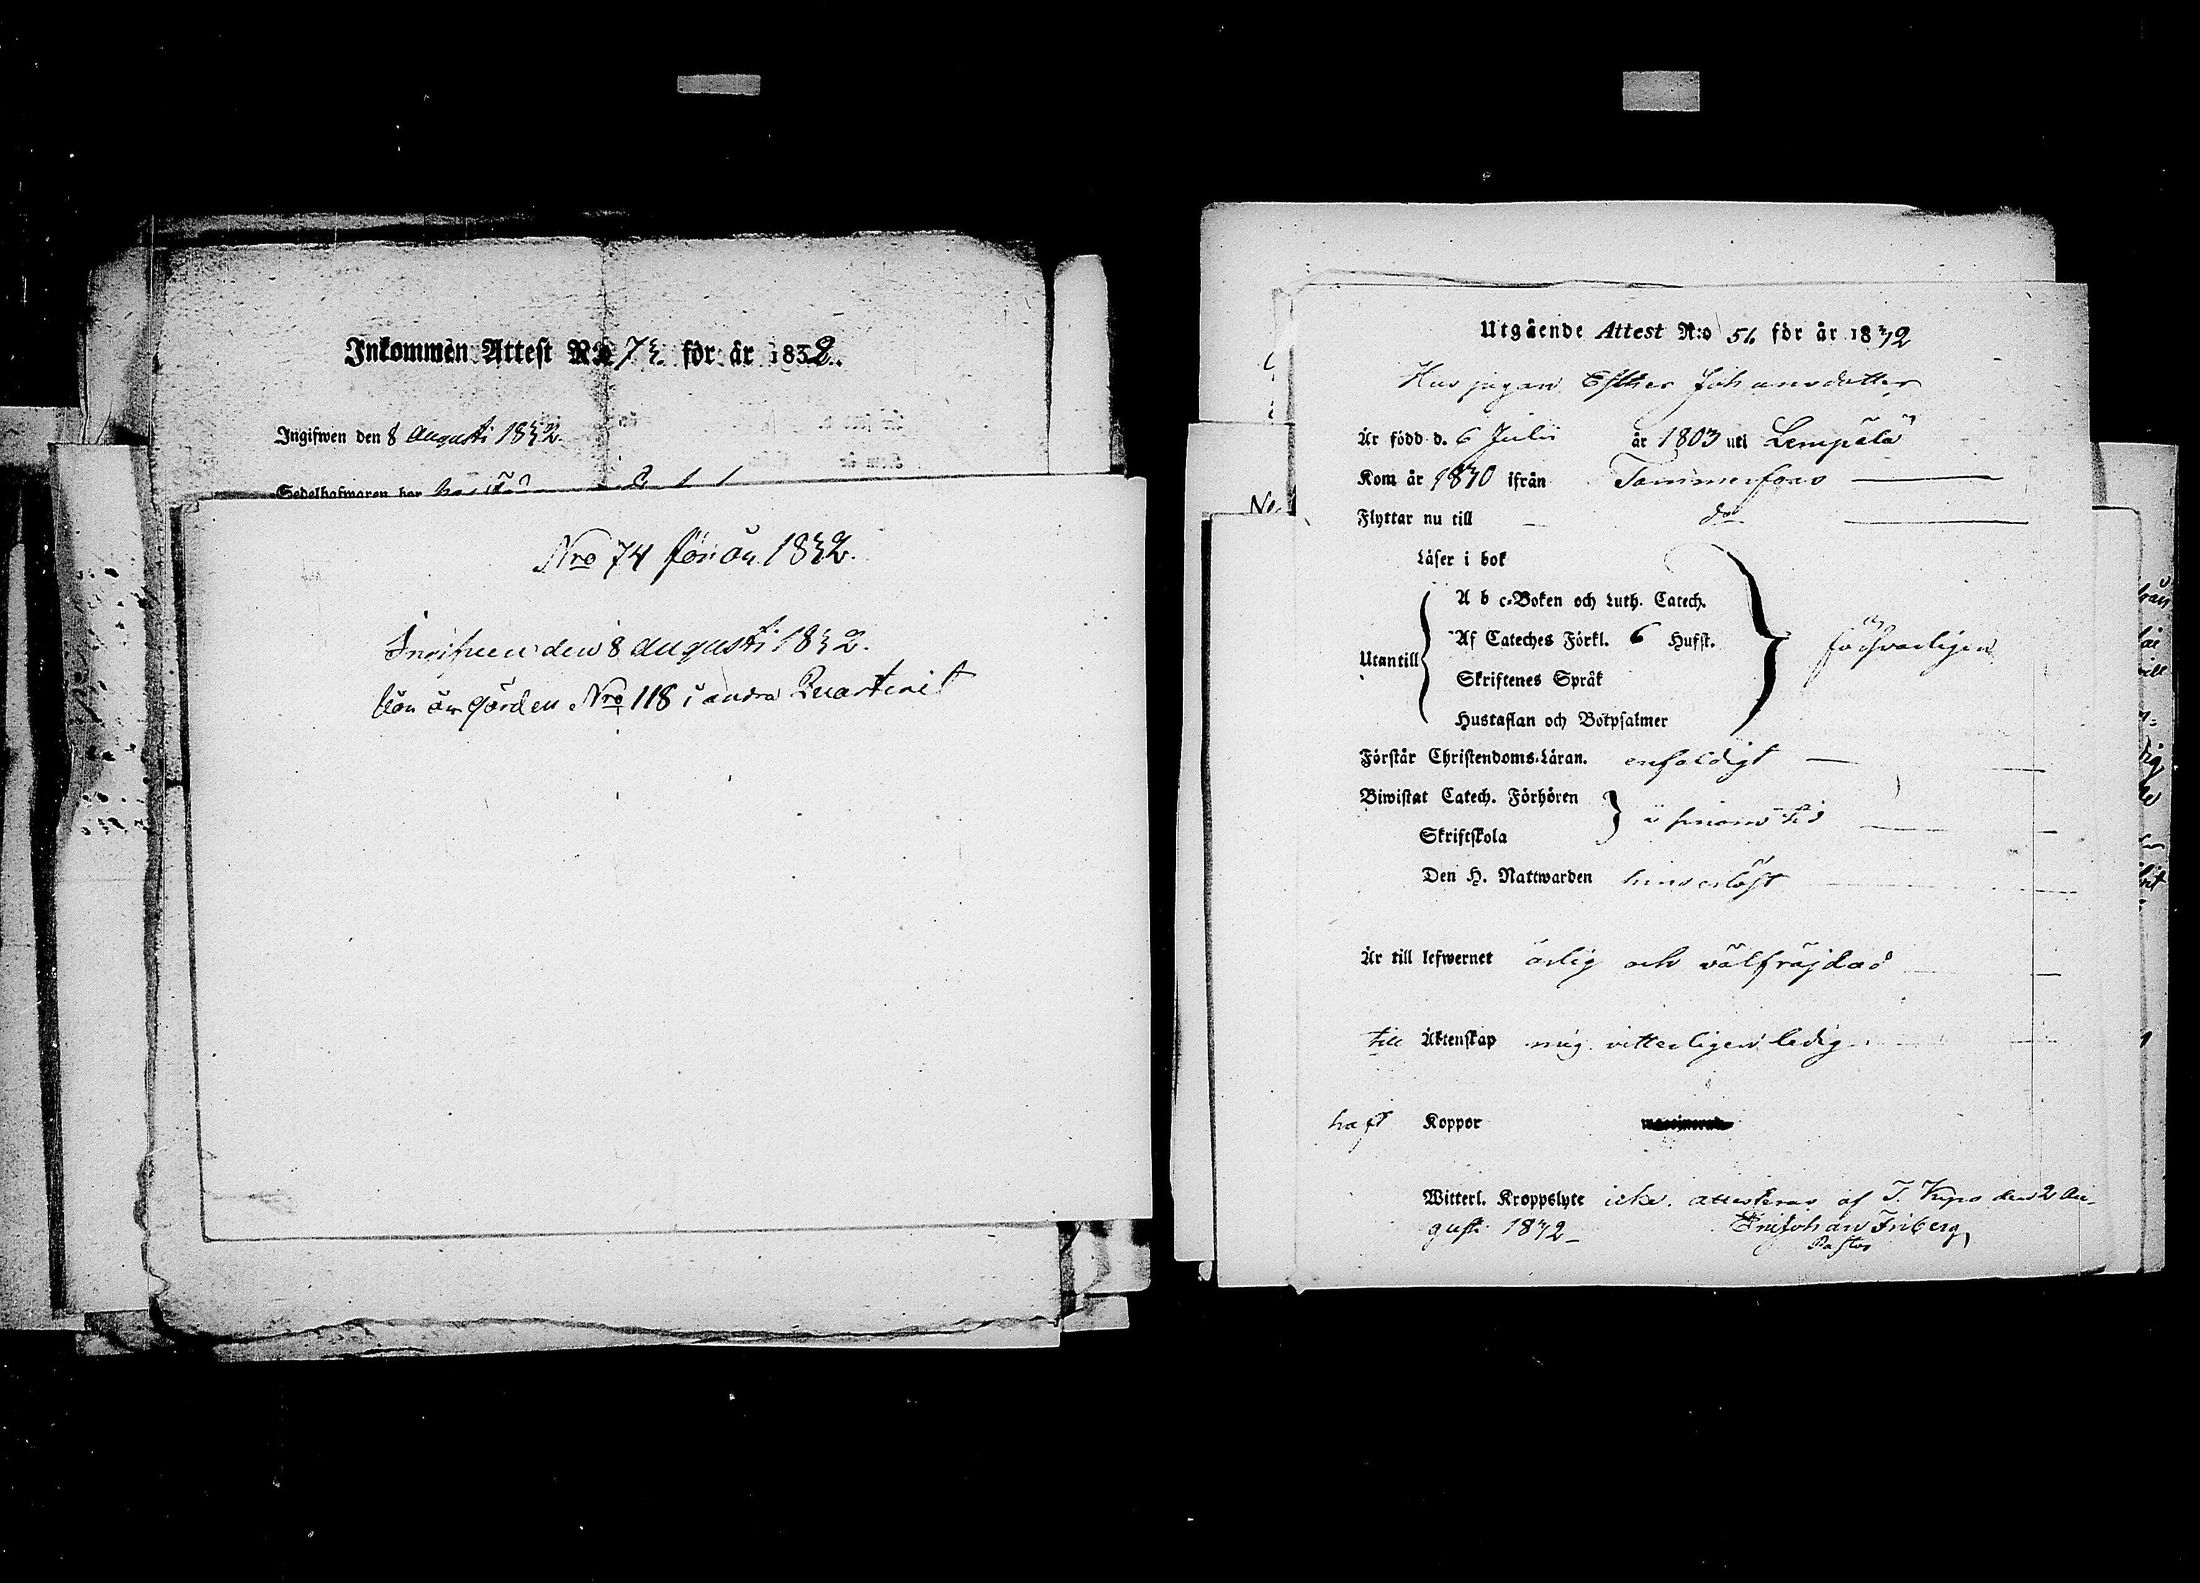 Inkommen Attest N:o 73. för år 1832.
Ingifwen den 8 Augusti 1832.
Sedelhafwaren bor
Nro 74 för år 1832.
Ingifven den 8 Augusti 1832.
bor är gården Nro 118 i andra Quarteret
Utgående Attest N:o 51. för år 1832
Hus pigan Esther Johansdotter
Är född d. 6 Julii år 1803 uti Lempälä
Kom år 1830 ifrån Tammerfors
Flyttar nu till do
Läser i bok
A b c-Boken och Luth. Catech.
Utantill Af Cateches Förkl. 6 Hufst. försvarligen
Skriftenes Språk
Hustaflan och Botpsalmer
Förstår Christendoms-Läran. enfaldigt
Biwistat Catech. Förhören i sinom tid
Skriftskola
Den H. Nattwarden
Är till lefwernet ärlig och välfräjdad
till Äktenskap mig vitterligen ledig
haft Koppor
Witterl. Kroppslyte icke. attesteras af T. Kyro den 2 Au-
gusti 1832 Johan Friberg
Pastor